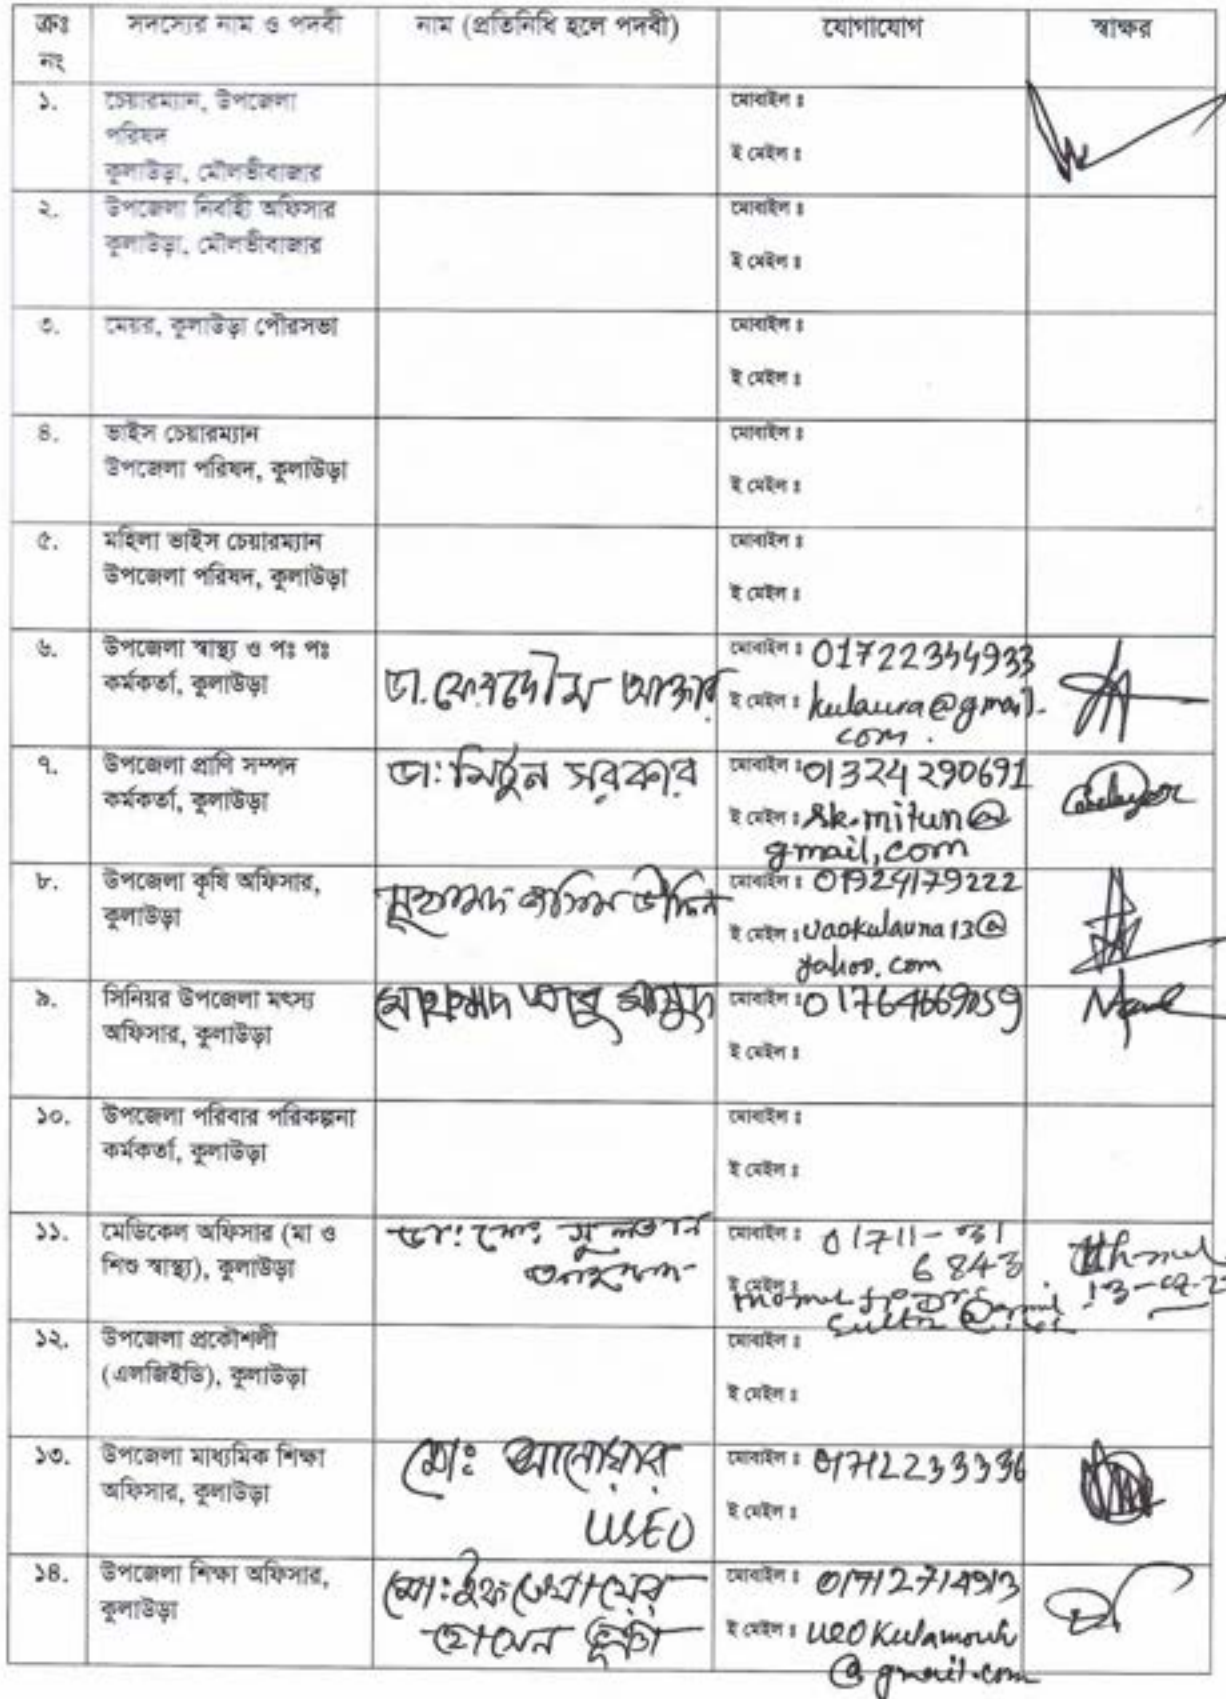 ক্রঃ নং সদস্যের নাম ও পদবী নাম (প্রতিনিধি হলে পদবী) যোগাযোগ স্বাক্ষর
১. চেয়ারম্যান, উপজেলা
পরিষদ
কুলাউড়া, মৌলভীবাজার
মোবাইল ঃ
ই মেইল ঃ
২. উপজেলা নির্বাহী অফিসার
কুলাউড়া, মৌলভীবাজার
মোবাইল ঃ
ই মেইল ঃ
৩. মেয়র, কুলাউড়া পৌরসভা
মোবাইল ঃ
ই মেইল ঃ
৪. ভাইস চেয়ারম্যান
উপজেলা পরিষদ, কুলাউড়া
মোবাইল ঃ
ই মেইল ঃ
৫. মহিলা ভাইস চেয়ারম্যান
উপজেলা পরিষদ, কুলাউড়া
মোবাইল ঃ
ই মেইল ঃ
৬. উপজেলা স্বাস্থ্য ও পঃ পঃ
কর্মকর্তা, কুলাউড়া
ডা. ফেরদৌস আক্তার
মোবাইল ঃ 01722344933
ই মেইল ঃ kulaura@gmail.
com.
৭. উপজেলা প্রাণি সম্পদ
কর্মকর্তা, কুলাউড়া
ডাঃ মিটুন সরকার
মোবাইল ঃ 01324290691
ই মেইল ঃ sk.mitun@
gmail,com
৮. উপজেলা কৃষি অফিসার,
কুলাউড়া
মুহাম্মদ জসিম উদ্দিন
মোবাইল ঃ 01924179222
ই মেইল ঃ uaokulaura13@
yahoo.com
৯. সিনিয়র উপজেলা মৎস্য
অফিসার, কুলাউড়া
মোহাম্মদ আবু মাসুদ
মোবাইল ঃ
ই মেইল ঃ
১০. উপজেলা পরিবার পরিকল্পনা
কর্মকর্তা, কুলাউড়া
মোবাইল ঃ
ই মেইল ঃ
১১. মেডিকেল অফিসার (মা ও
শিশু স্বাস্থ্য), কুলাউড়া
ডাঃ মোঃ সুলতান
আহমেদ
মোবাইল ঃ 01711-
6843
ই মেইল ঃ
১২. উপজেলা প্রকৌশলী
(এলজিইডি), কুলাউড়া
মোবাইল ঃ
ই মেইল ঃ
১৩. উপজেলা মাধ্যমিক শিক্ষা
অফিসার, কুলাউড়া
মোঃ আনোয়ার
USEO
মোবাইল ঃ 01712233336
ই মেইল ঃ
১৪. উপজেলা শিক্ষা অফিসার,
কুলাউড়া
মোঃ ইফতেখায়ের
হোসেন ভূঞা
মোবাইল ঃ 01712714913
ই মেইল ঃ
@gmail.com